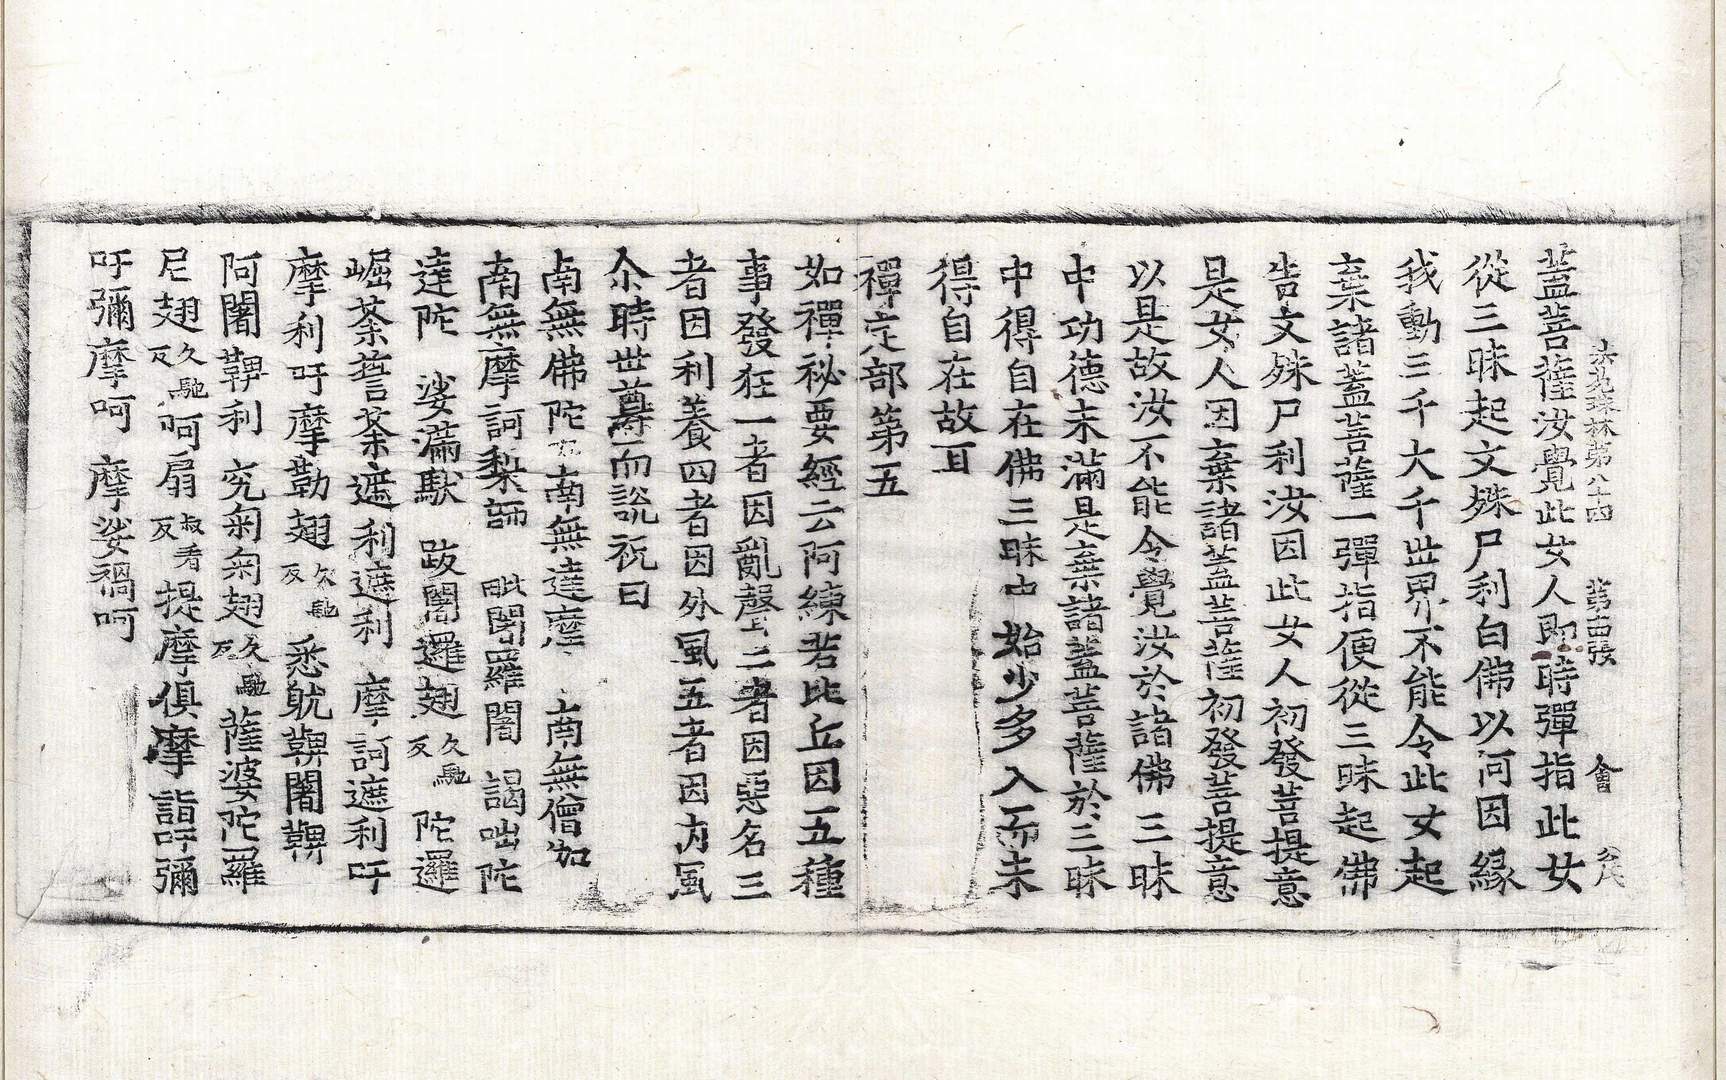 蓋菩薩汝覺此女人即時彈指此女
法苑珠林第八十四 第古張 會
從三昧起文殊尸利白佛以何因緣
我動三千大千世界不能令此女起
棄諸蓋菩薩一彈指便從三昧起佛
告文殊尸利汝因此女人初發菩提意
是女人因棄諸蓋菩薩初發菩提意
以是故汝不能令覺汝於諸佛三昧
中功德未滿是棄諸蓋菩薩於三昧
中得自在佛三昧中始少多入而未
得自在故耳
禪定部第五
如禪祕要經云阿練若比丘因五種
事發狂一者因亂聲二者因惡名三
者因利養四者因外風五者因內風
尒時世尊而說祝曰
南無佛陀 南無達摩 南無僧伽
南無摩訶梨師 毗闍羅闍 謁咄陀
達陀 娑滿馱 跋闍邏翅久馳反 陀邏
崛荼誓荼遮利遮利 摩訶遮利吁
摩利吁摩勸翅欠馳反 悉躭鞞闍鞞
阿闍鞞利 究匊匊翅久馳反 薩婆陀羅
尼翅久馳反 呵扇叔看反 提摩俱摩 詣吁彌
吁彌摩呵 摩娑禍呵